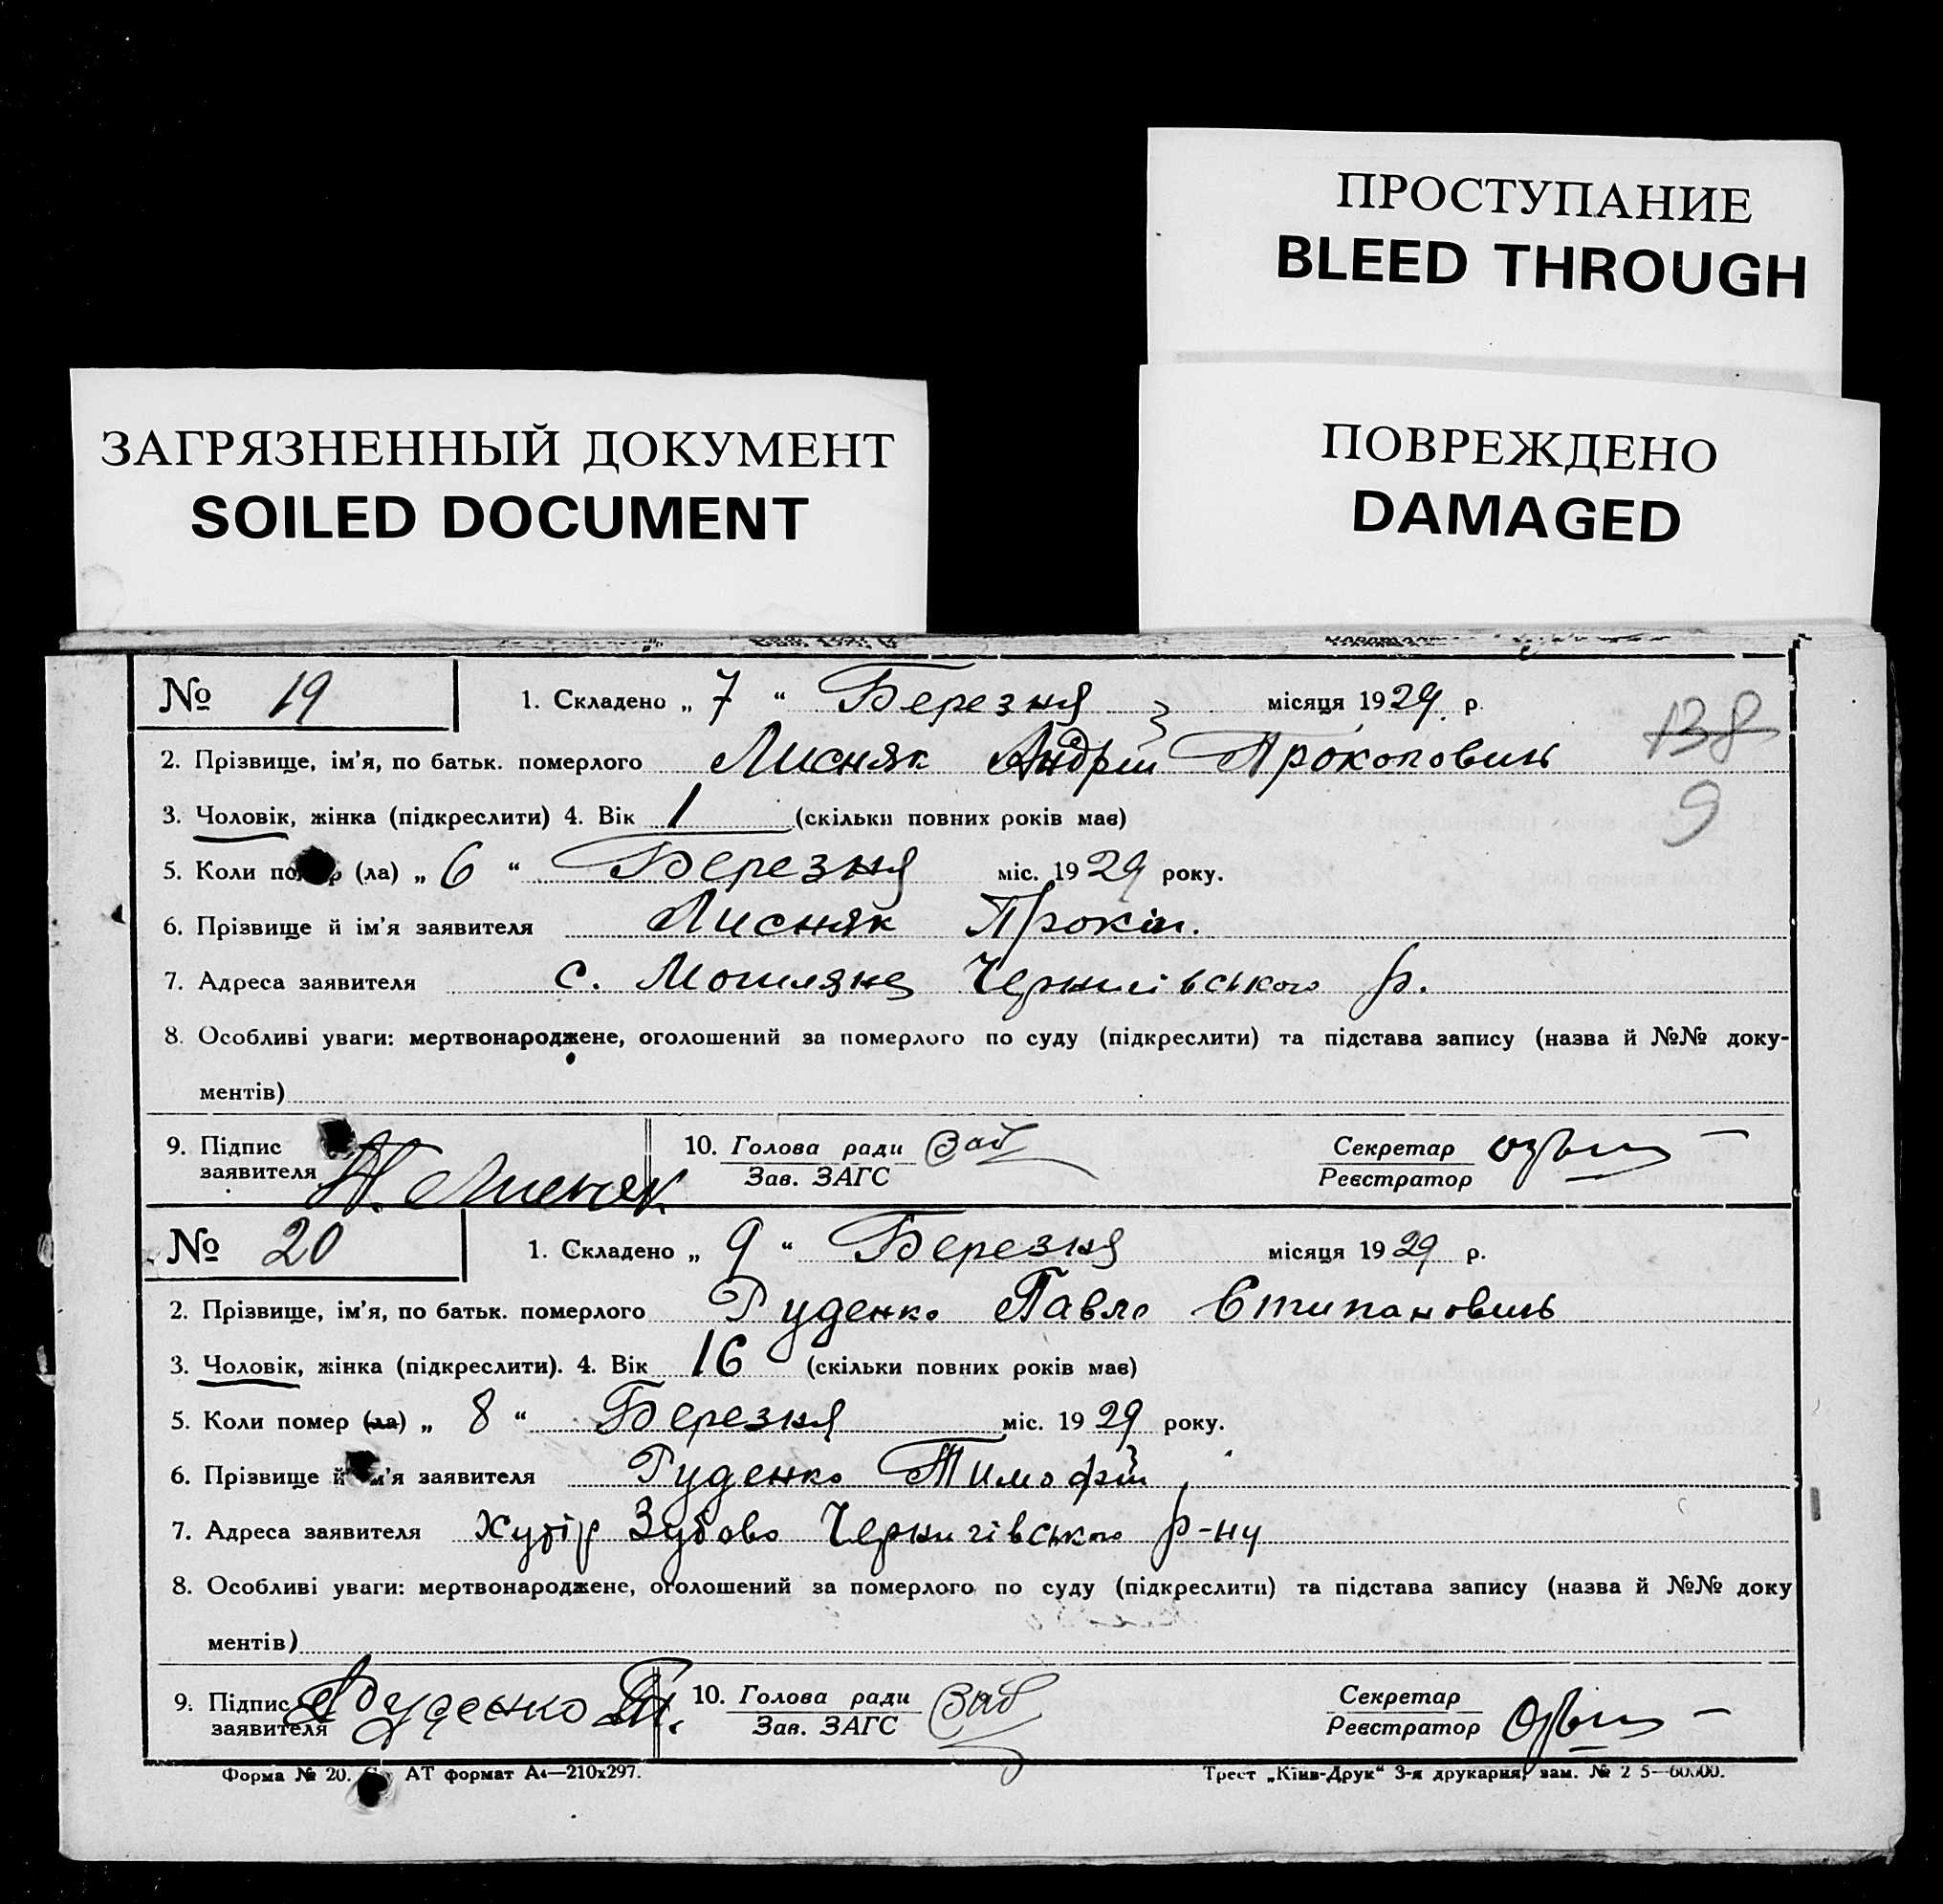 ПРОСТУПАНИЕ
BLEED THROUGH
ЗАГРЯЗНЕННЫЙ ДОКУМЕНТ
SOILED DOCUMENT
ПОВРЕЖДЕНО
DAMAGED
№ 19 1. Складено „ 7 “ Березня місяця 1929 р.
138
2. Прізвище, ім'я, по батьк. померлого Лисняк Андрій Прокопович
9
3. Чоловік, жінка (підкреслити) 4. Вік 1 (скільки повних років має)
5. Коли (ла) „ 6 “ Березня міс. 1929 року.
6. Прізвище й ім'я заявителя Лисняк Прокіп.
7. Адреса заявителя с. Моги­ляне Чернигівського р.
8. Особливі уваги: мертвонароджене, оголошений за померлого по суду (підкреслити) та підстава запису (назва й №№ доку-
ментів)
9. Підпис заявителя П. Лисняк 10. Голова ради Зав. ЗАГС Секретар Реєстратор
№ 20 1. Складено „ 9 “ Березня місяця 1929 р.
2. Прізвище, ім'я, по батьк. померлого Руденко Павло Стипанович
3. Чоловік, жінка (підкреслити). 4. Вік 16 (скільки повних років має)
5. Коли помер (ла) „ 8 “ Березня міс. 1929 року.
6. Прізвище й заявителя Руденко Тимофій
7. Адреса заявителя Хутір Зубово Чернигівського р-ну
8. Особливі уваги: мертвонароджене, оголошений за померлого по суду (підкреслити) та підстава запису (назва й №№ доку
ментів)
9. Підпис заявителя Руденко Т. 10. Голова ради Зав. ЗАГС Секретар Реєстратор
Форма № 20. АТ формат А4—210х297. Трест „Київ-Друк“ 3-я друкарня, зам. №